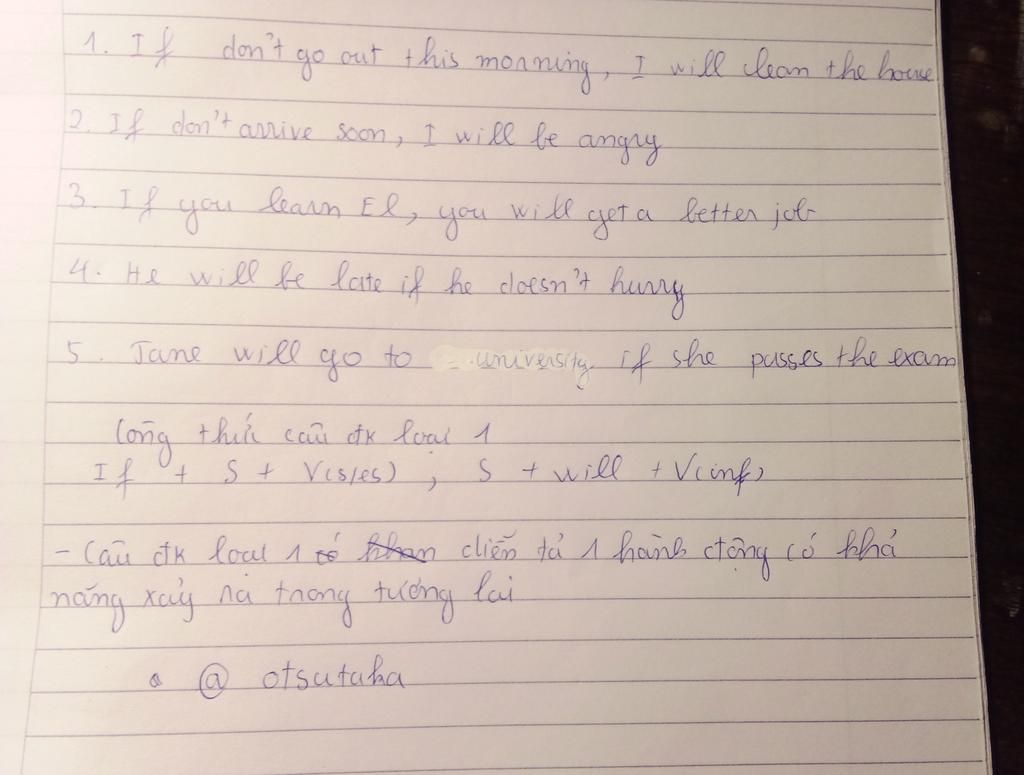 1. If don't go out this morning, I will clean the house
2. If don't arrive soon, I will be angry
3. If you learn El, you will get a better job
4. He will be late if he doesn't hurry
5. Jane will go to university if she passes the exam
Công thức câu đk loại 1
If + S + V(s/es), S + will + V(inf)
- Câu đk loại 1 có khan diễn tả 1 hành động có khả
năng xảy ra trong tương lai
@ otsutaka